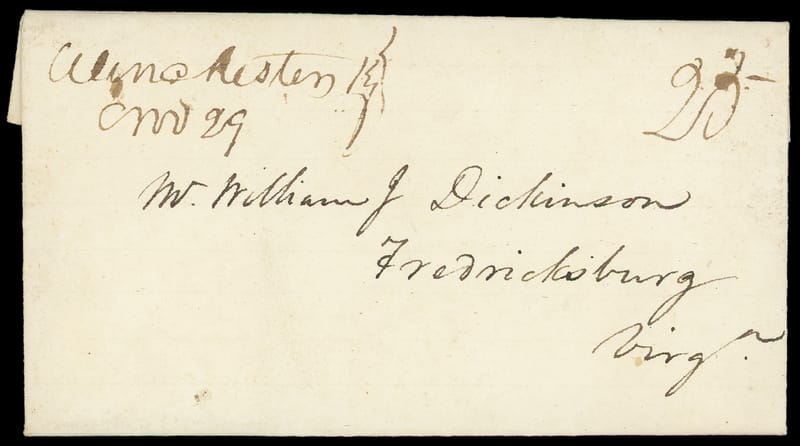 Winchester Ky
Nov 29
25
Mr. William J Dickinson
Fredricksburg
Virga.